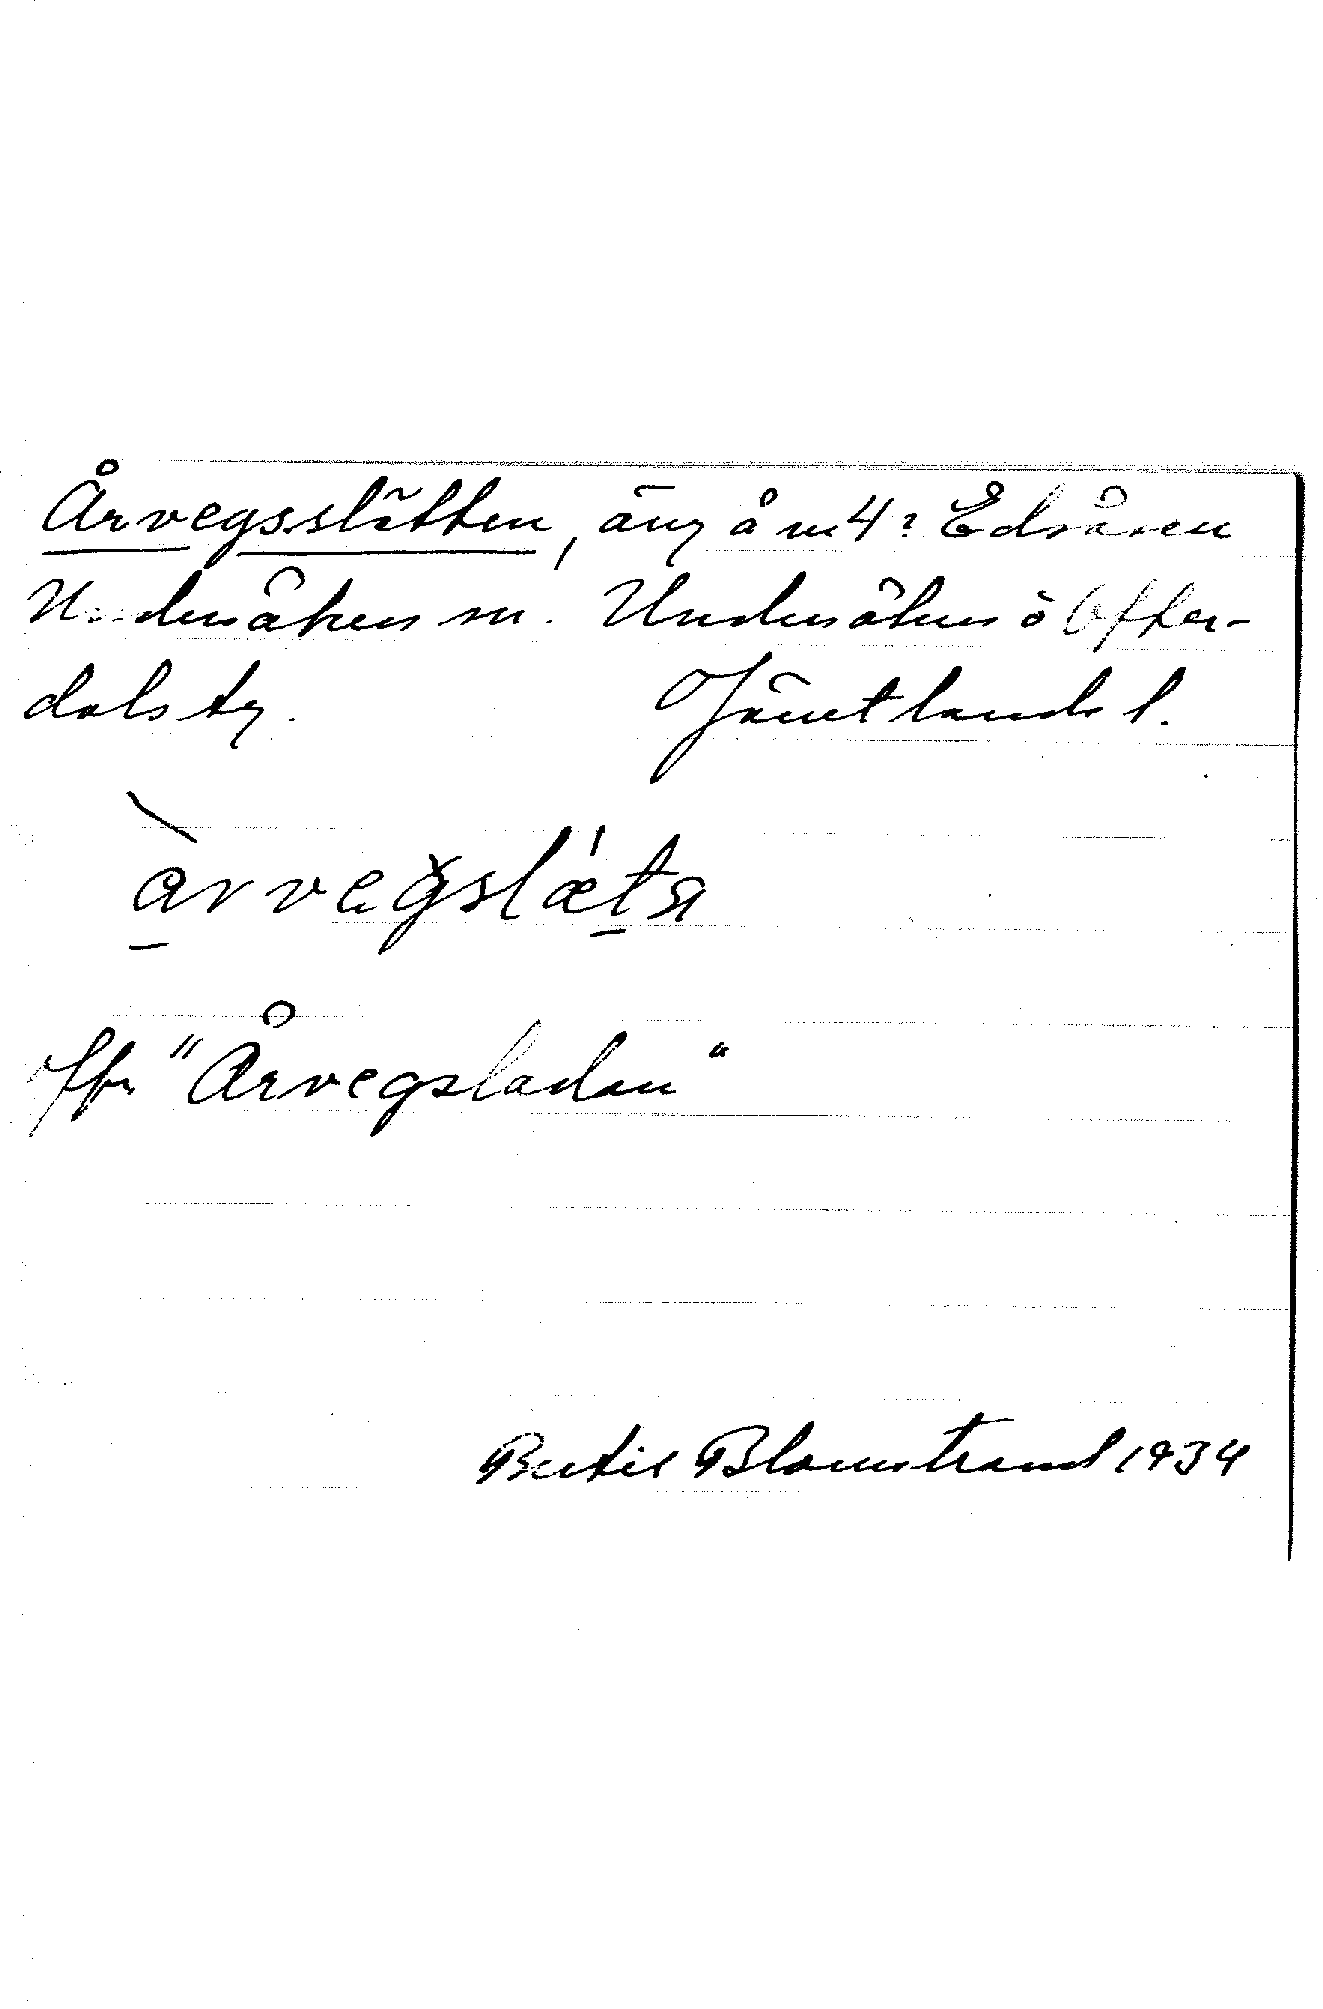 Årvegsslåtten, äng å nr 4? Edsåsen
Undersåkers sn. Undersåkers o Offer-
dals tg. Jämtlands l.
àrvegslæ̍ta
Jfr "Årvegsladan"
Bertil Blomstrand 1934